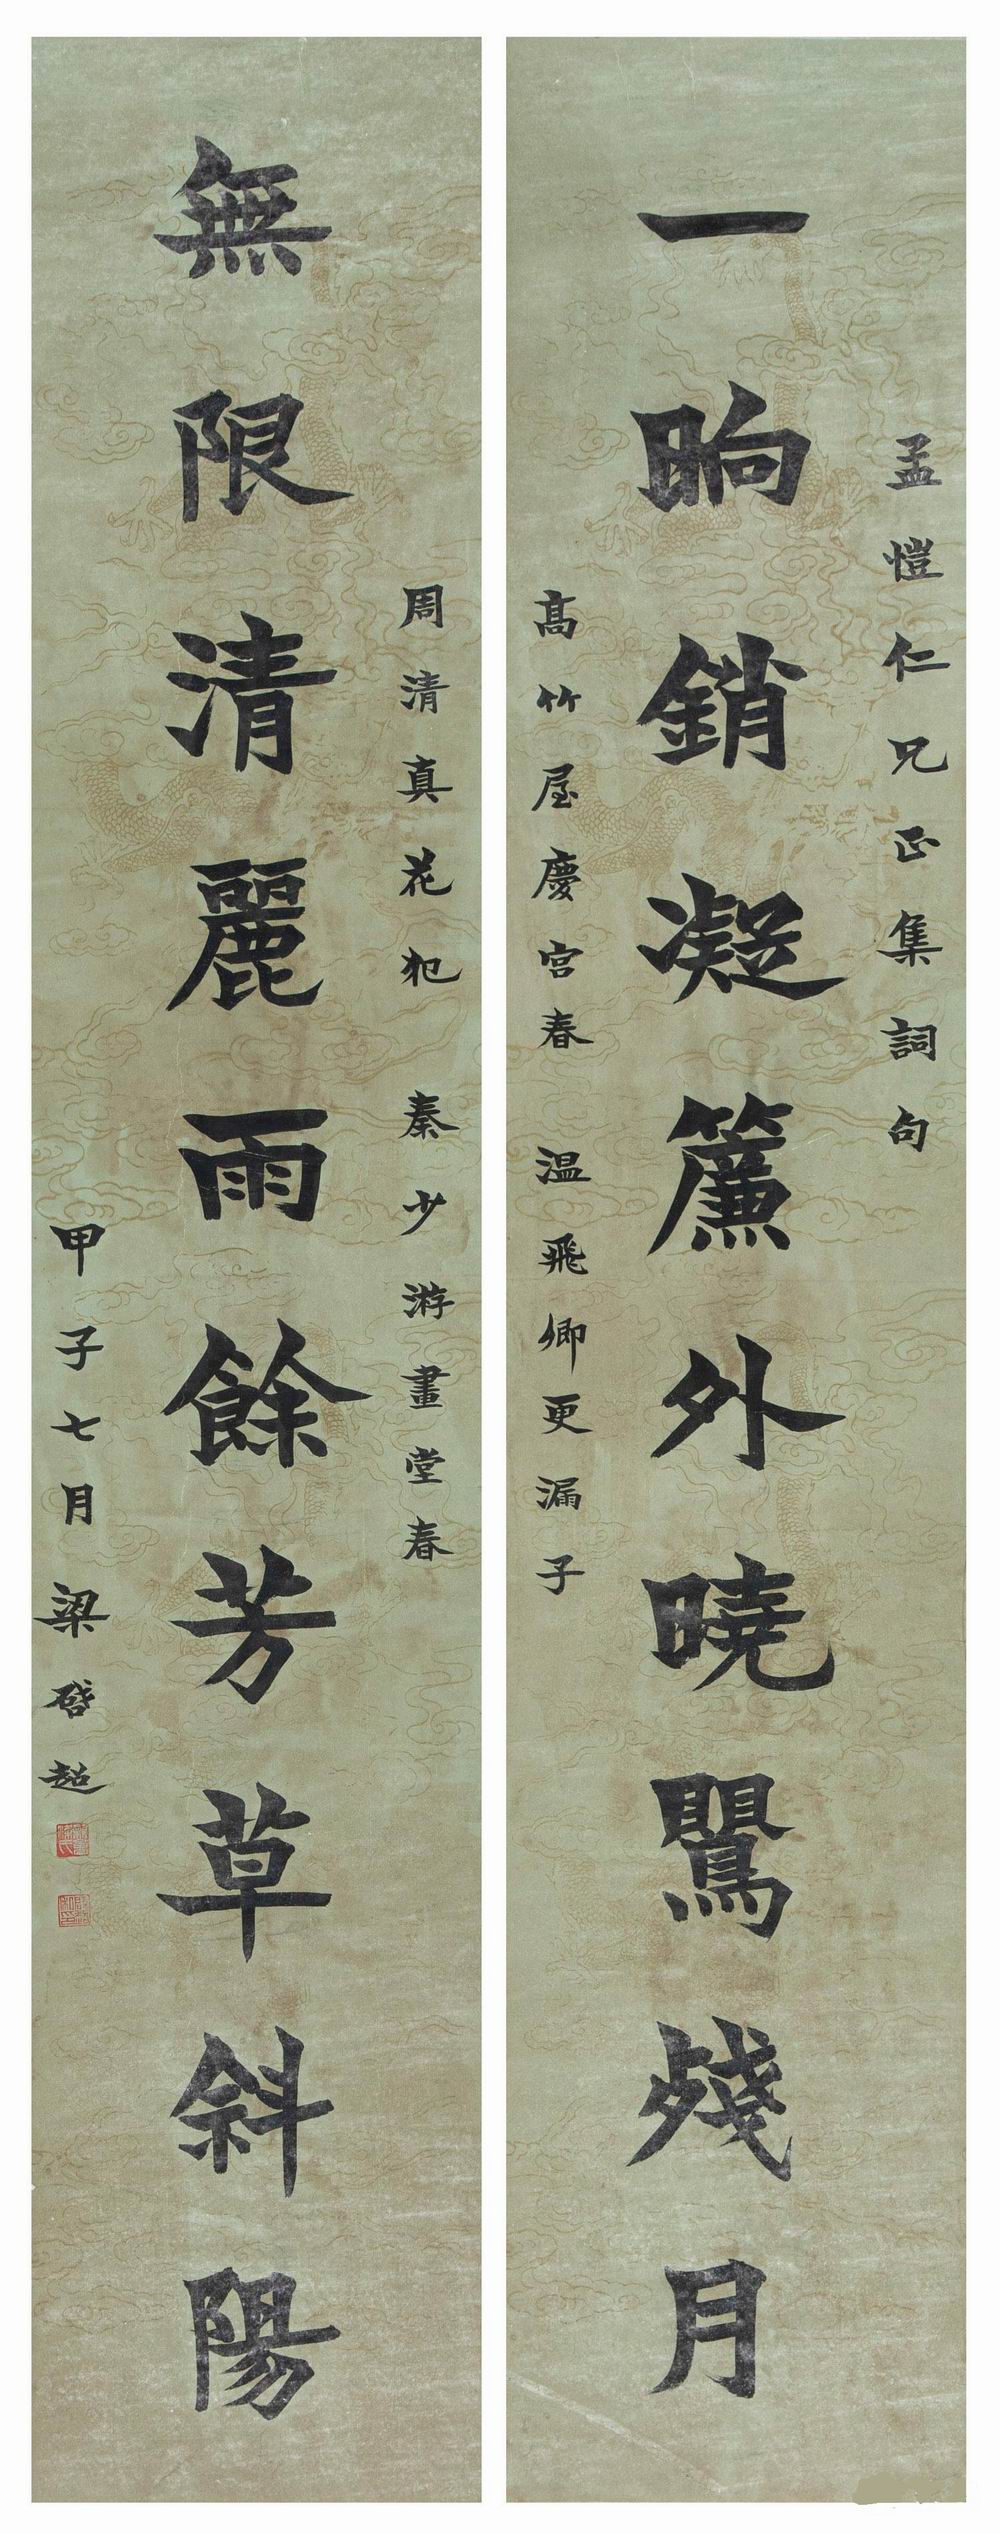 孟愷仁兄正集詞句
一晌銷凝簾外曉鶯殘月
高竹屋慶宮春 温飛卿更漏子
周清真花犯 秦少游畫堂春
無限清麗雨餘芳草斜陽
甲子七月梁啓超